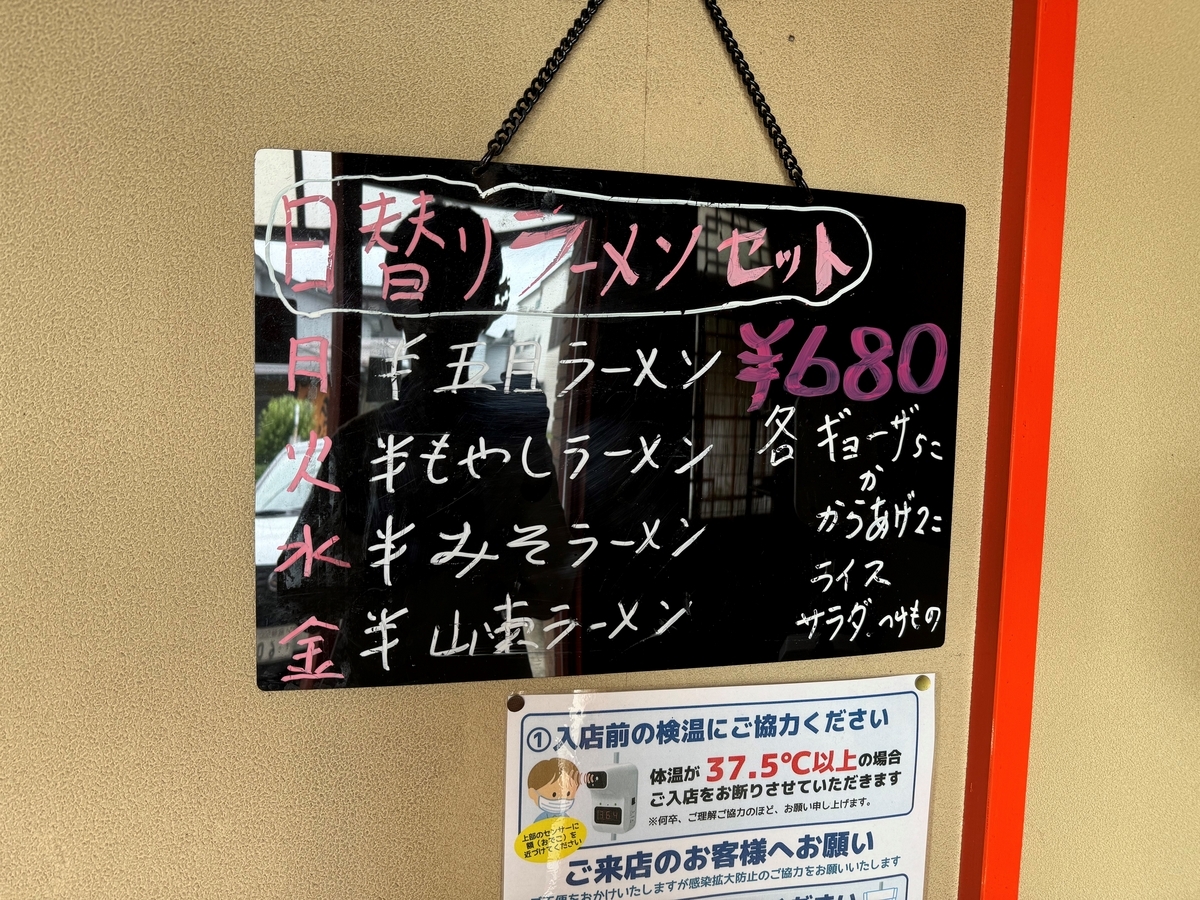 日替りラーメンセット
月 半 五目ラーメン ¥680
火 半もやしラーメン
水 半みそラーメン
金 半山東ラーメン
各 ギョーザ5こ
か
からあげ2こ
ライス
サラダ つけもの
① 入店前の検温にご協力ください
体温が 37.5℃以上の場合
ご入店をお断りさせていただきます
※何卒、ご理解ご協力のほど、お願い申し上げます。
上部のセンサーに
額（おでこ）を
近づけてください
ご来店のお客様へお願い
ご不便をおかけいたしますが感染拡大防止のご協力をお願いいたします